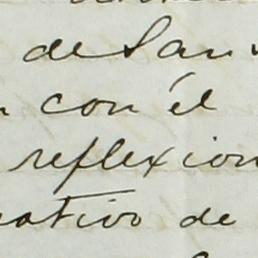 de San
con él
reflexion
ativo de